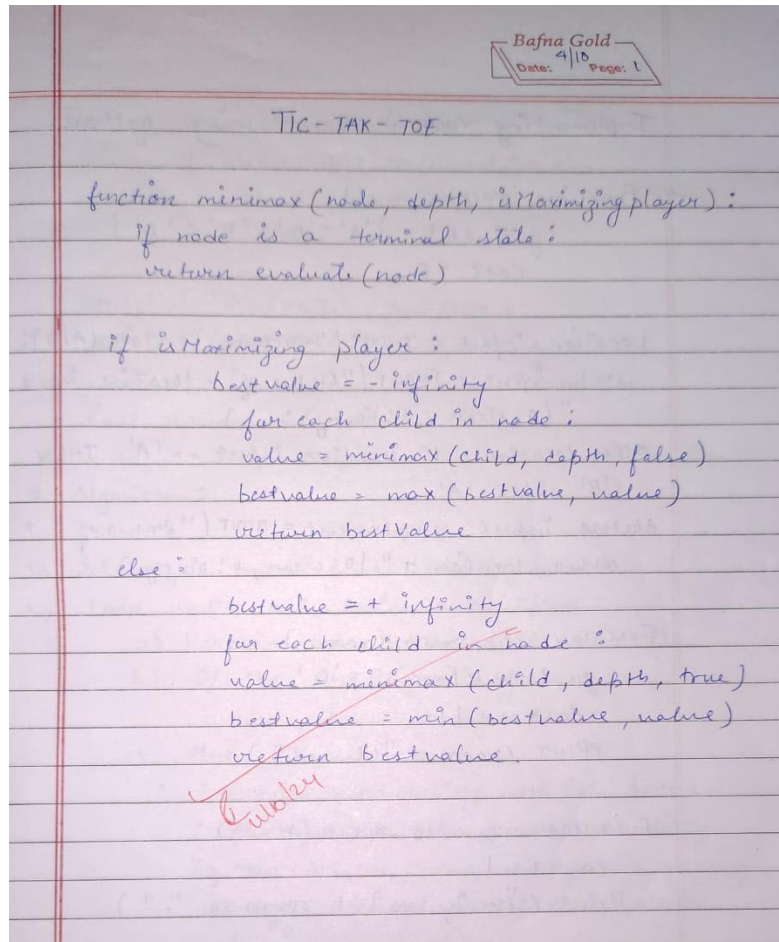 Bafna Gold
Date: 4/10 Page: 1
TIC-TAK-TOE
function minimax (node, depth, isMaximizing player) :
if node is a terminal state :
return evaluate (node)
if is Maximizing player :
best value = - infinity
for each child in node :
value = minimax (child, depth, false)
bestvalue = max (bestvalue, value)
return best Value
else :
best value = + infinity
for each child in node :
value = minimax (child, depth, true)
bestvalue = min (bestvalue, value)
return bestvalue.